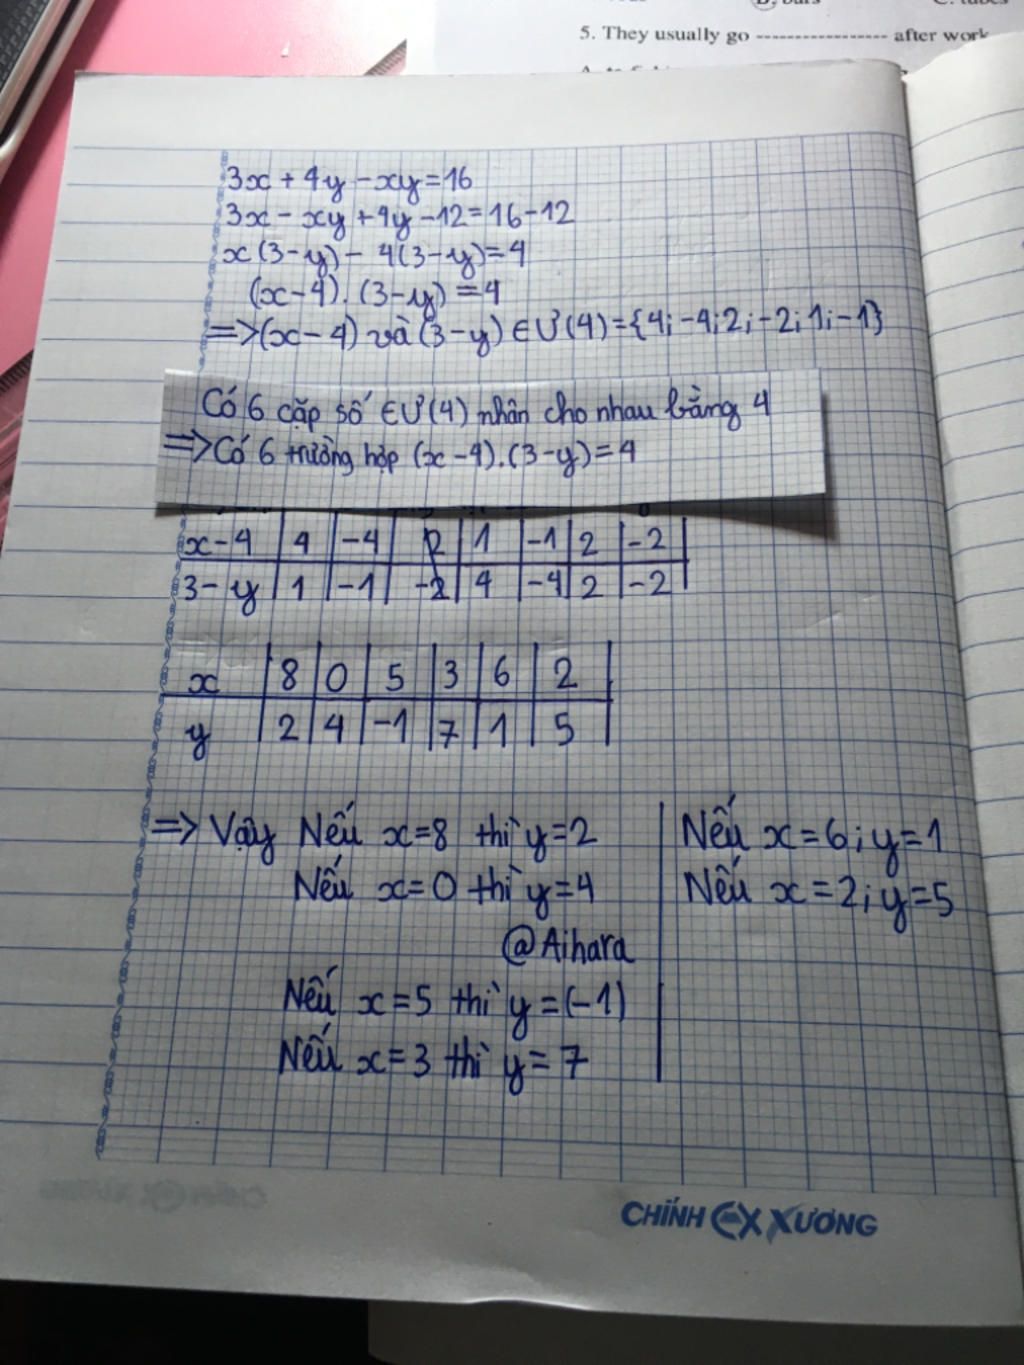 5. They usually go ---------------- after work
3x + 4y - xy = 16
3x - xy + 4y - 12 = 16 - 12
x(3-y) - 4(3-y) = 4
(x-4).(3-y) = 4
=> (x-4) và (3-y) ∈ Ư(4) = {4; -4; 2; -2; 1; -1}
Có 6 cặp số ∈ Ư(4) nhân cho nhau bằng 4
=> Có 6 trường hợp (x-4).(3-y) = 4
x-4 | 4 | -4 | 2 | 1 | -1 | 2 | -2
3-y | 1 | -1 | -2 | 4 | -4 | 2 | -2
x | 8 | 0 | 5 | 3 | 6 | 2
y | 2 | 4 | -1 | 7 | 1 | 5
=> Vậy Nếu x=8 thì y=2
Nếu x=0 thì y=4
@Aihara
Nếu x=5 thì y=(-1)
Nếu x=3 thì y=7
Nếu x=6; y=1
Nếu x=2; y=5
CHÍNH XƯƠNG